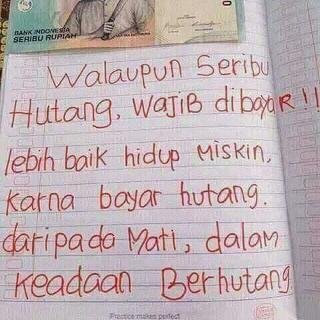 BANK INDONESIA
SERIBU RUPIAH
Walaupun Seribu
Hutang, wajib dibayar!!
lebih baik hidup Miskin,
Karna bayar hutang.
daripada Mati, dalam
Keadaan Berhutang
Practice makes perfect